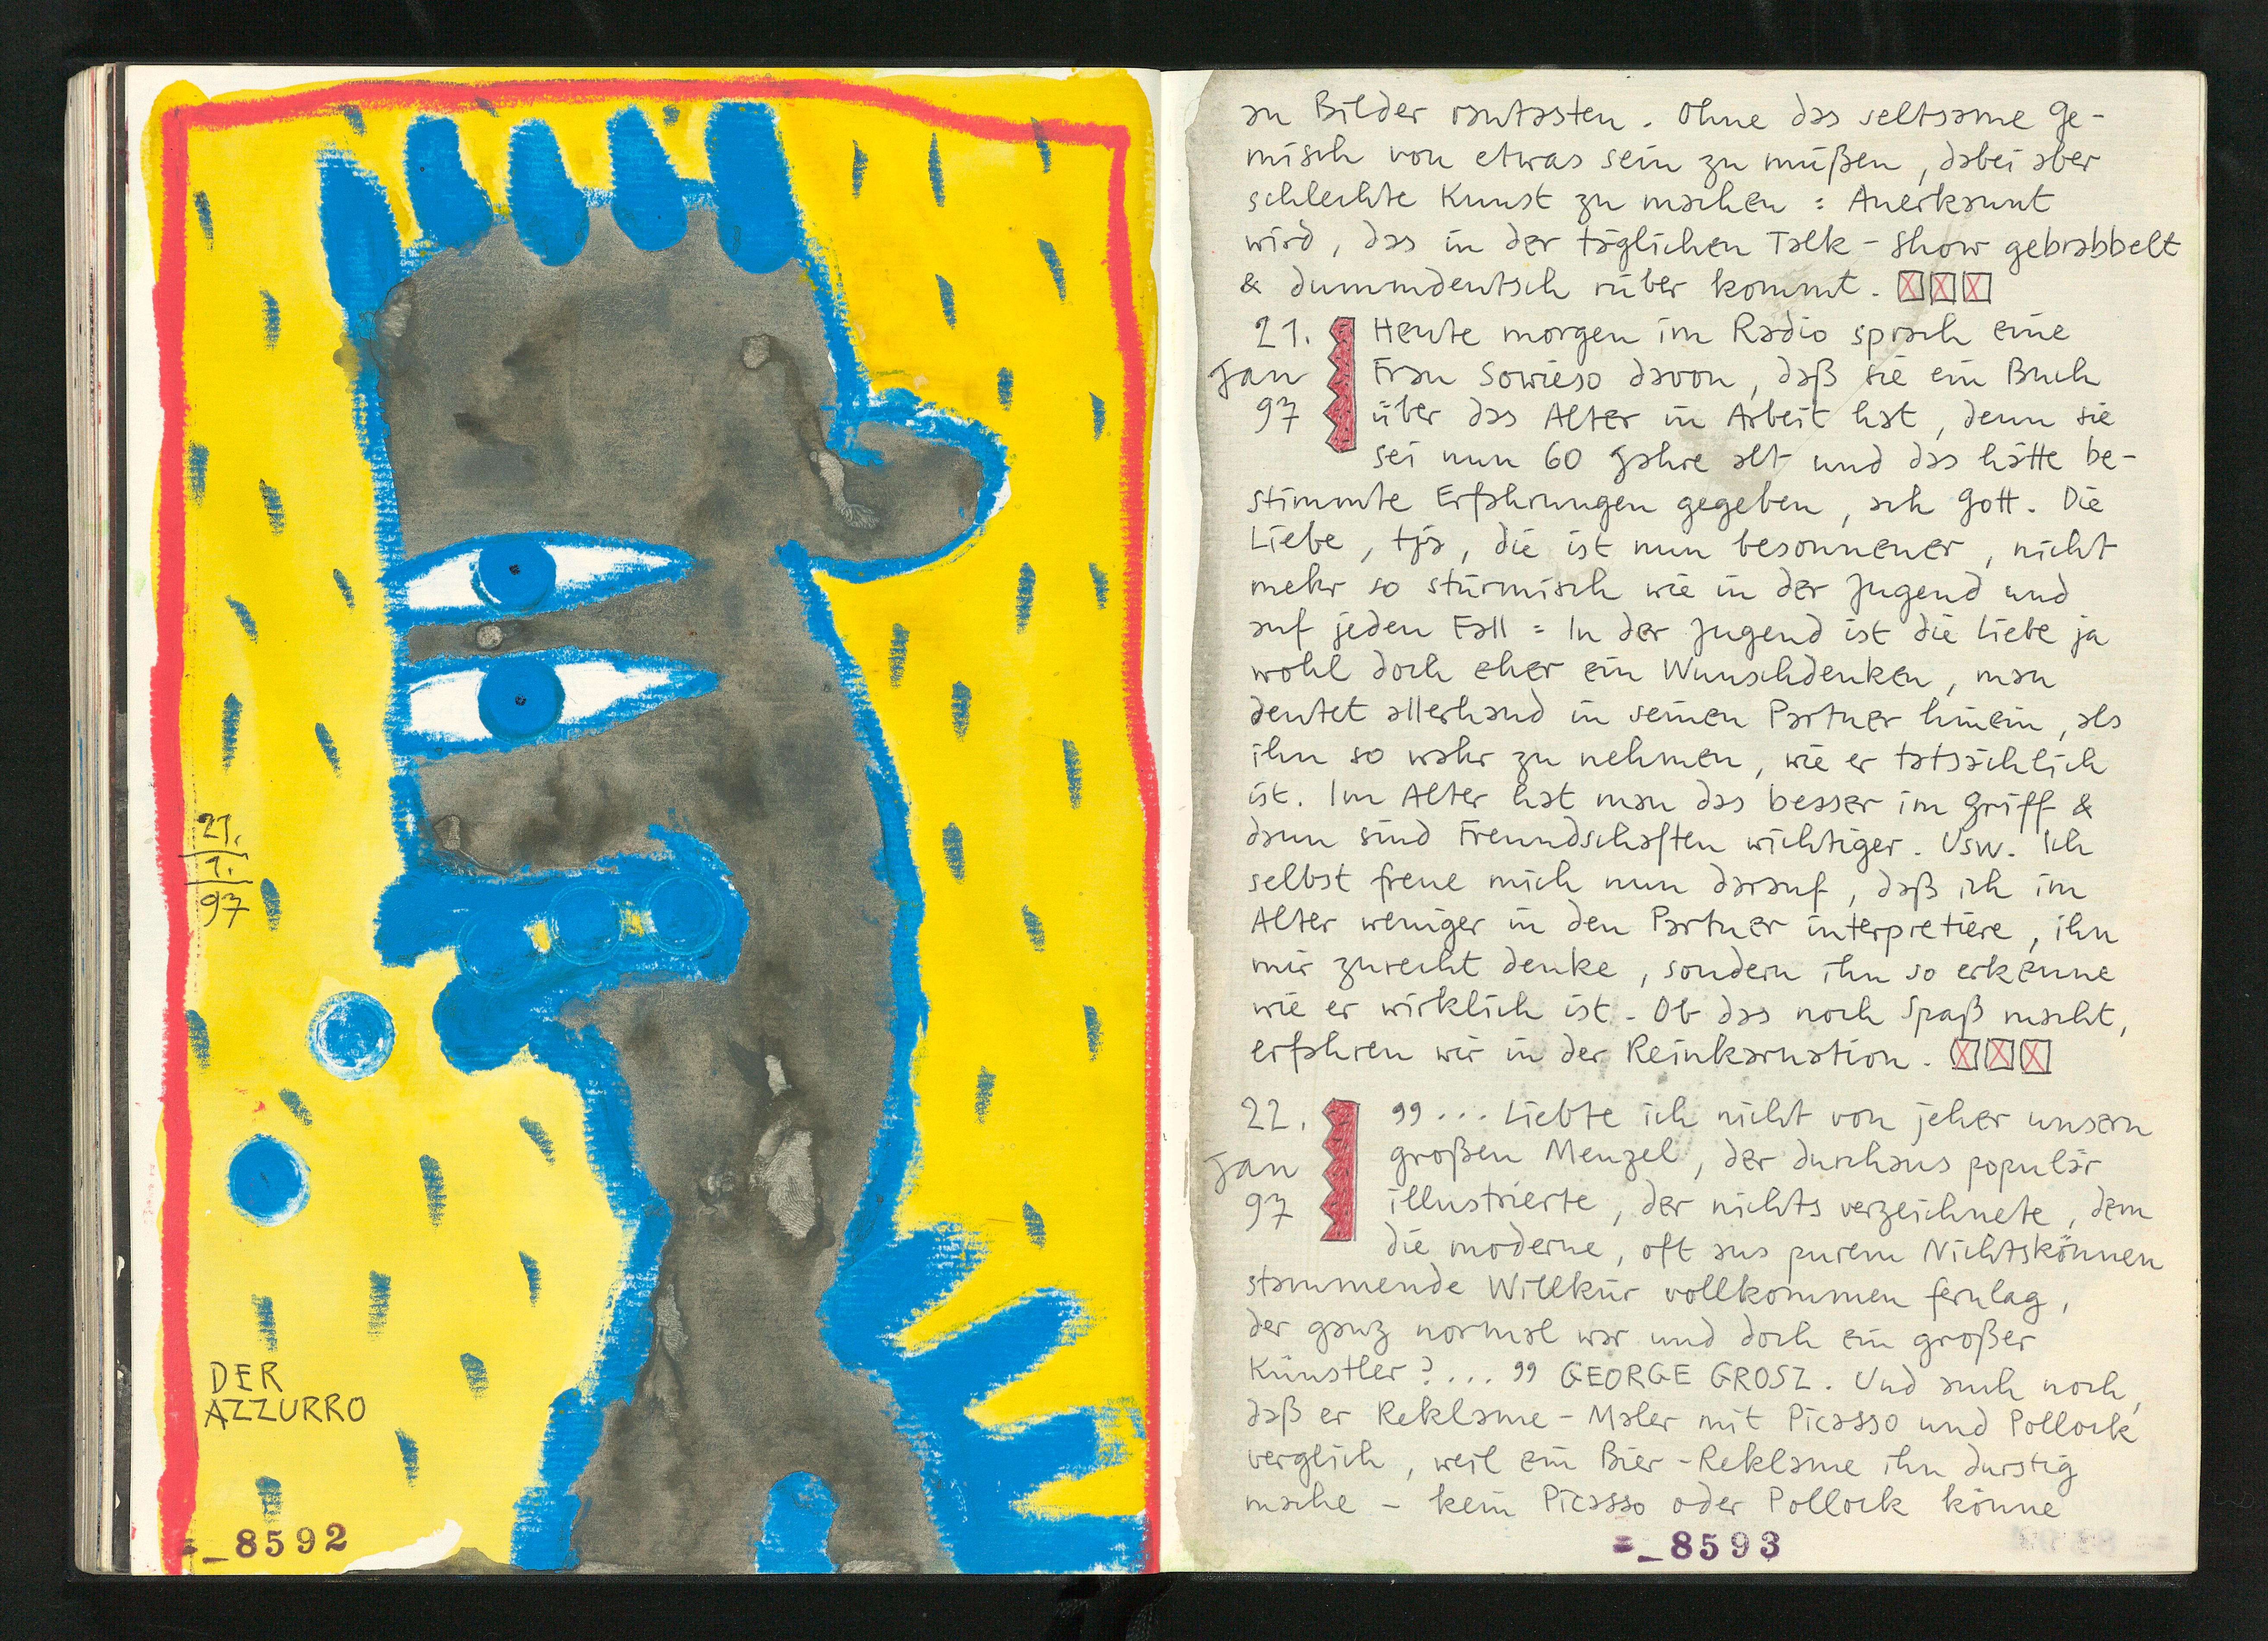 21.
1.
97
DER
AZZURRO
=_8592
an Bilder rantasten. Ohne das seltsame Ge-
misch von etwas sein zu müßen, dabei aber
schlechte Kunst zu machen: Anerkannt
wird, das in der täglichen Talk-Show gebrabbelt
& dummdeutsch rüber kommt.
21. Heute morgen im Radio sprach eine
Jan Frau Sowieso davon, daß sie ein Buch
97 über das Alter in Arbeit hat, denn sie
sei nun 60 Jahre alt und das hätte be-
stimmte Erfahrungen gegeben, ach Gott. Die
Liebe, tja, die ist nun besonnener, nicht
mehr so stürmisch wie in der Jugend und
auf jeden Fall: In der Jugend ist die Liebe ja
wohl doch eher ein Wunschdenken, man
deutet allerhand in seinen Partner hinein, als
ihn so wahr zu nehmen, wie er tatsächlich
ist. Im Alter hat man das besser im Griff &
dann sind Freundschaften wichtiger. Usw. Ich
selbst freue mich nun darauf, daß ich im
Alter weniger in den Partner interpretiere, ihn
mir zurecht denke, sondern ihn so erkenne
wie er wirklich ist. Ob das noch Spaß macht,
erfahren wir in der Reinkarnation.
22. "... Liebte ich nicht von jeher unsern
Jan großen Menzel, der durchaus populär
97 illustrierte, der nichts verzeichnete, dem
die moderne, oft aus purem Nichtskönnen
stammende Willkür vollkommen fernlag,
der ganz normal war und doch ein großer
Künstler?..." GEORGE GROSZ. Und auch noch,
daß er Reklame-Maler mit Picasso und Pollock
verglich, weil ein Bier-Reklame ihn durstig
mache - kein Picasso oder Pollock könne
=_8593